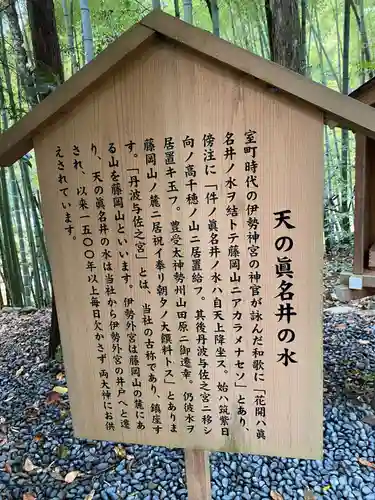 天の眞名井の水
室町時代の伊勢神宮の神官が詠んだ和歌に「花開ハ眞
名井ノ水ヲ結トテ藤岡山ニアカラメナセソ」とあり、
傍注に「件ノ眞名井ノ水ハ自天上降坐ス。始ハ筑紫日
向ノ高千穂ノ山ニ居置給フ。其後丹波与佐之宮ニ移シ
居置キ玉フ。豊受太神勢州山田原ニ御遷幸。仍波水ヲ
藤岡山ノ麓ニ居祝イ奉リ朝夕ノ大饌料トス」とありま
す。「丹波与佐之宮」とは、当社の古称であり、鎮座す
る山を藤岡山といいます。伊勢外宮は藤岡山の麓にあ
り、天の眞名井の水は当社から伊勢外宮の井戸へと遷
され、以来一五〇〇年以上毎日欠かさず両大神にお供
えされています。